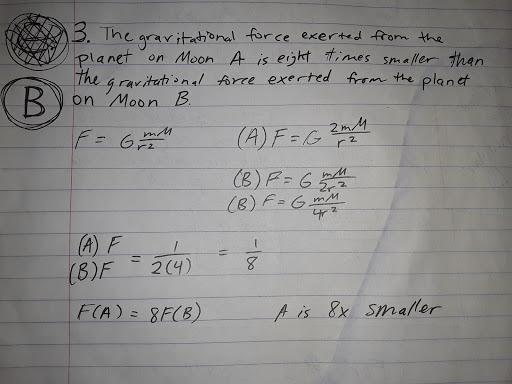 3. The gravitational force exerted from the
planet on Moon A is eight times smaller than
the gravitational force exerted from the planet
on Moon B.
B
F = G mM/r² (A) F = G 2mM/r²
(B) F = G mM/2r²
(B) F = G mM/4r²
(A) F / (B) F = 1/2(4) = 1/8
F(A) = 8F(B) A is 8x smaller